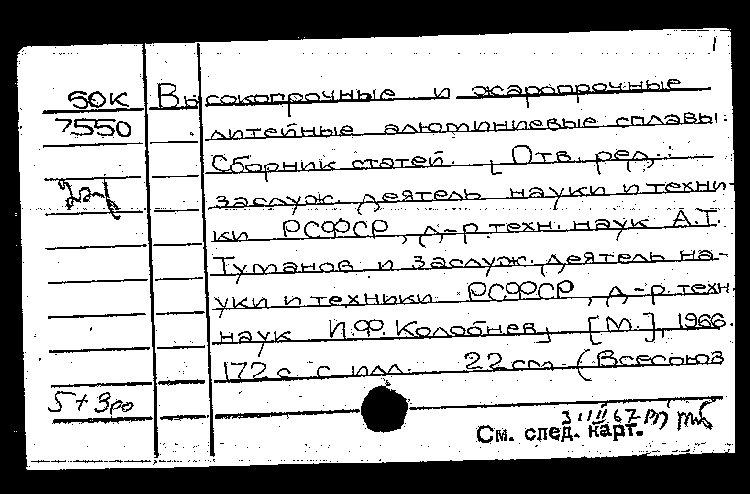 1
50к Высокопрочные и жаропрочные
7550 литейные алюминиевые сплавы.
Сборник статей. [Отв. ред.:
заслуж. деятель науки и техни-
ки РСФСР, д-р техн. наук А.Т.
Туманов и заслуж. деятель на-
уки и техники РСФСР, д-р. техн.
наук И.Ф. Колобнев]. [М.], 1966.
172 с с илл. 22 см. (Всесоюз
5+3ро
См. след. карт.